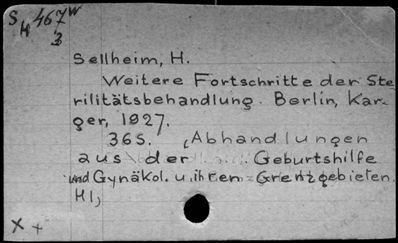 S H 467 W
3
Sellheim, H.
Weitere Fortschritte der Ste
rilitätsbehandlung. Berlin, Kar-
ger, 1927.
36S. (Abhandlungen
aus der Geburtshilfe
und Gynäkol. u. ihren Grenzgebieten.
HI)
X +